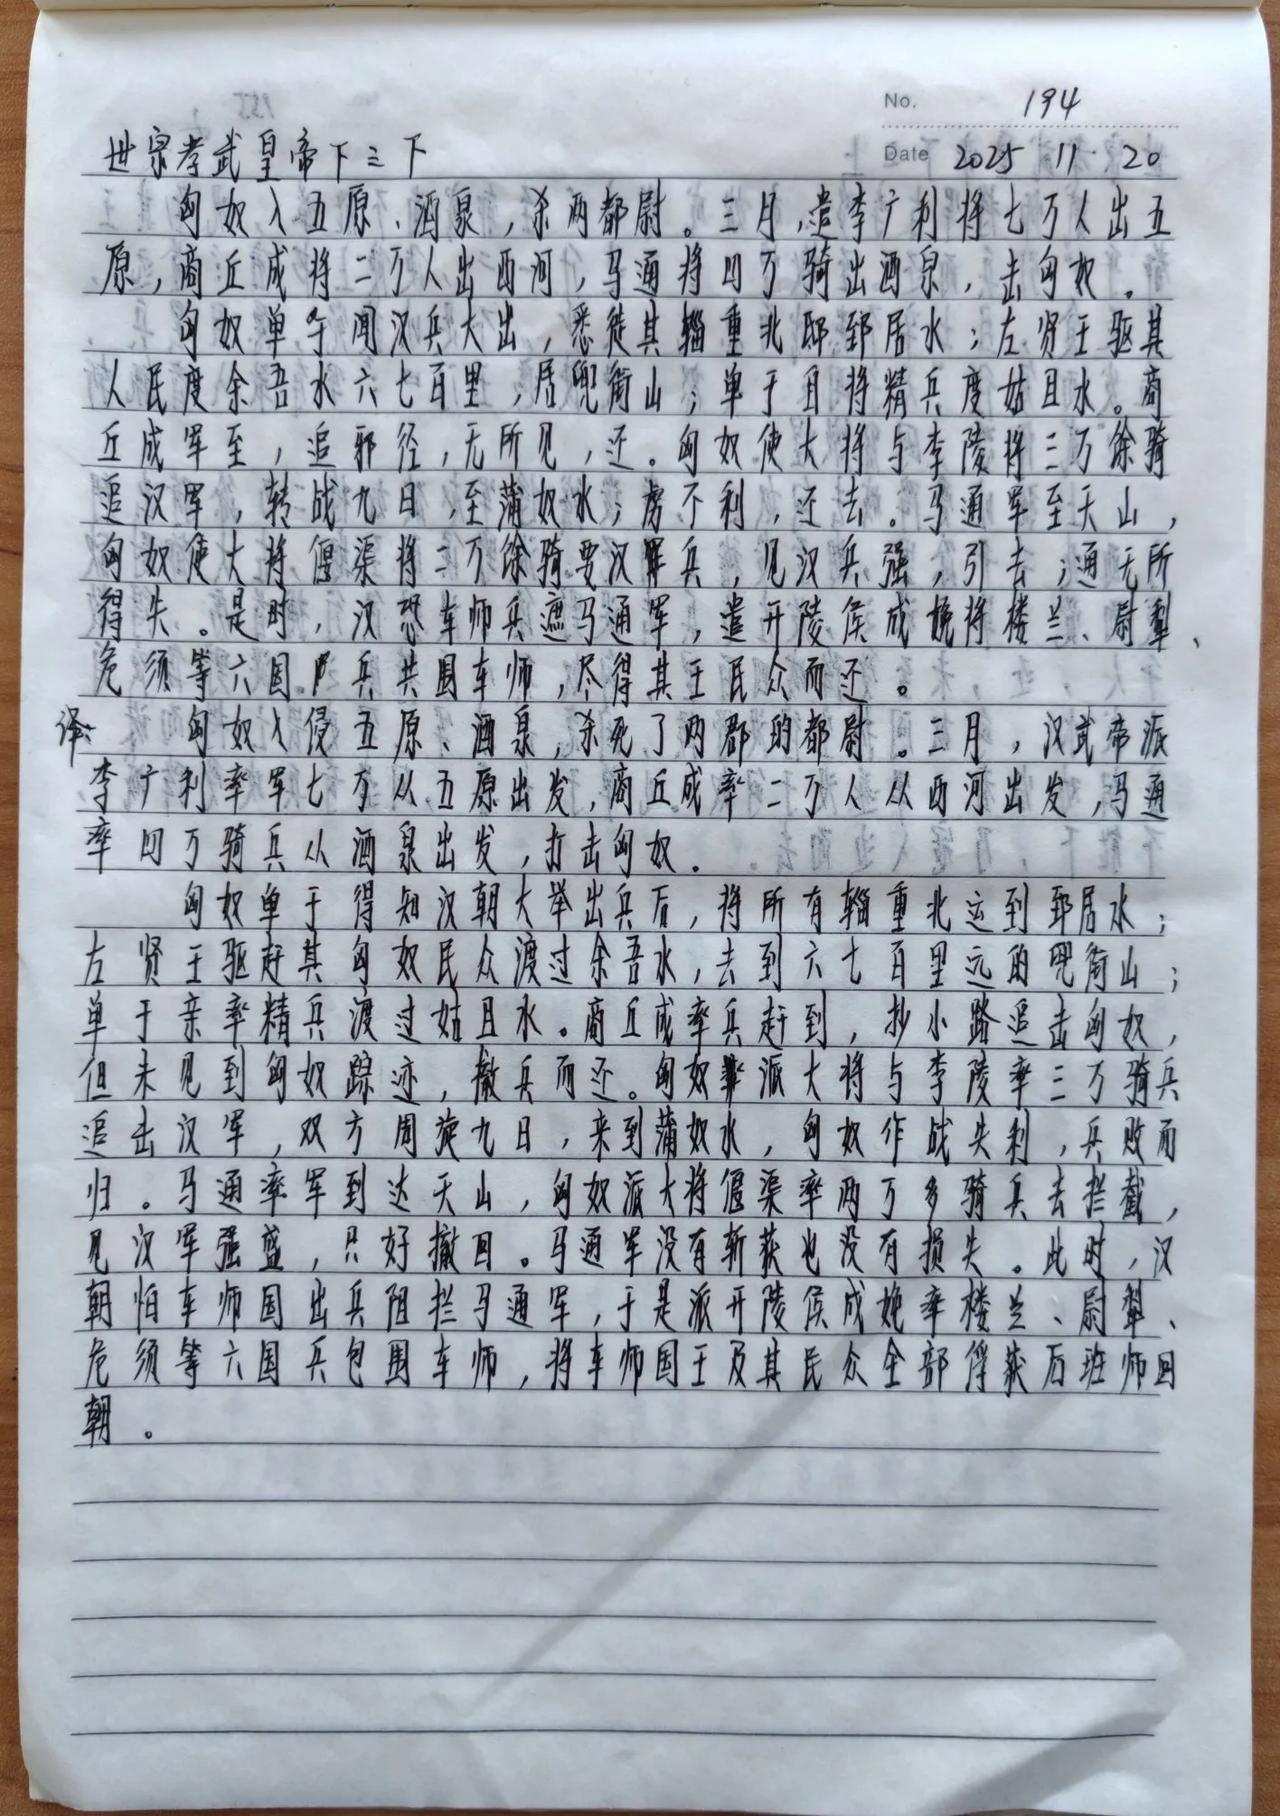 No. 194
世宗孝武皇帝下之下
Date 2025 11 20
匈奴入五原、酒泉,杀两都尉。三月,遣李广利将七万人出五
原,商丘成将二万人出西河,马通将四万骑出酒泉,击匈奴。
匈奴单于闻汉兵大出,悉徙其辎重北邸郅居水;左贤王驱其
人民度余吾水六七百里,居兜衔山;单于自将精兵度姑且水。商
丘成军至,追邪径,无所见,还。匈奴使大将与李陵将三万余骑
追汉军,转战九日,至蒲奴水;虏不利,还去。马通军至天山,
匈奴使大将偃渠将二万余骑要汉兵,见汉兵强,引去;通无所
得失。是时,汉恐车师兵遮马通军,遣开陵侯成娩将楼兰、尉犁、
危须等六国兵共围车师,尽得其王民众而还。
译: 匈奴入侵五原、酒泉,杀死了两郡的都尉。三月,汉武帝派
李广利率军七万从五原出发,商丘成率二万人从西河出发,马通
率四万骑兵从酒泉出发,打击匈奴。
匈奴单于得知汉朝大举出兵后,将所有辎重北运到郅居水;
左贤王驱赶其匈奴民众渡过余吾水,去到六七百里远的兜衔山;
单于亲率精兵渡过姑且水。商丘成率兵赶到,抄小路追击匈奴,
但未见到匈奴踪迹,撤兵而还。匈奴派大将与李陵率三万骑兵
追击汉军,双方周旋九日,来到蒲奴水,匈奴作战失利,兵败而
归。马通率军到达天山,匈奴派大将偃渠率两万多骑兵去拦截,
见汉军强盛,只好撤回。马通军没有斩获也没有损失。此时,汉
朝怕车师国出兵阻拦马通军,于是派开陵侯成娩率楼兰、尉犁、
危须等六国兵包围车师,将车师国王及其民众全部俘获后班师回
朝。